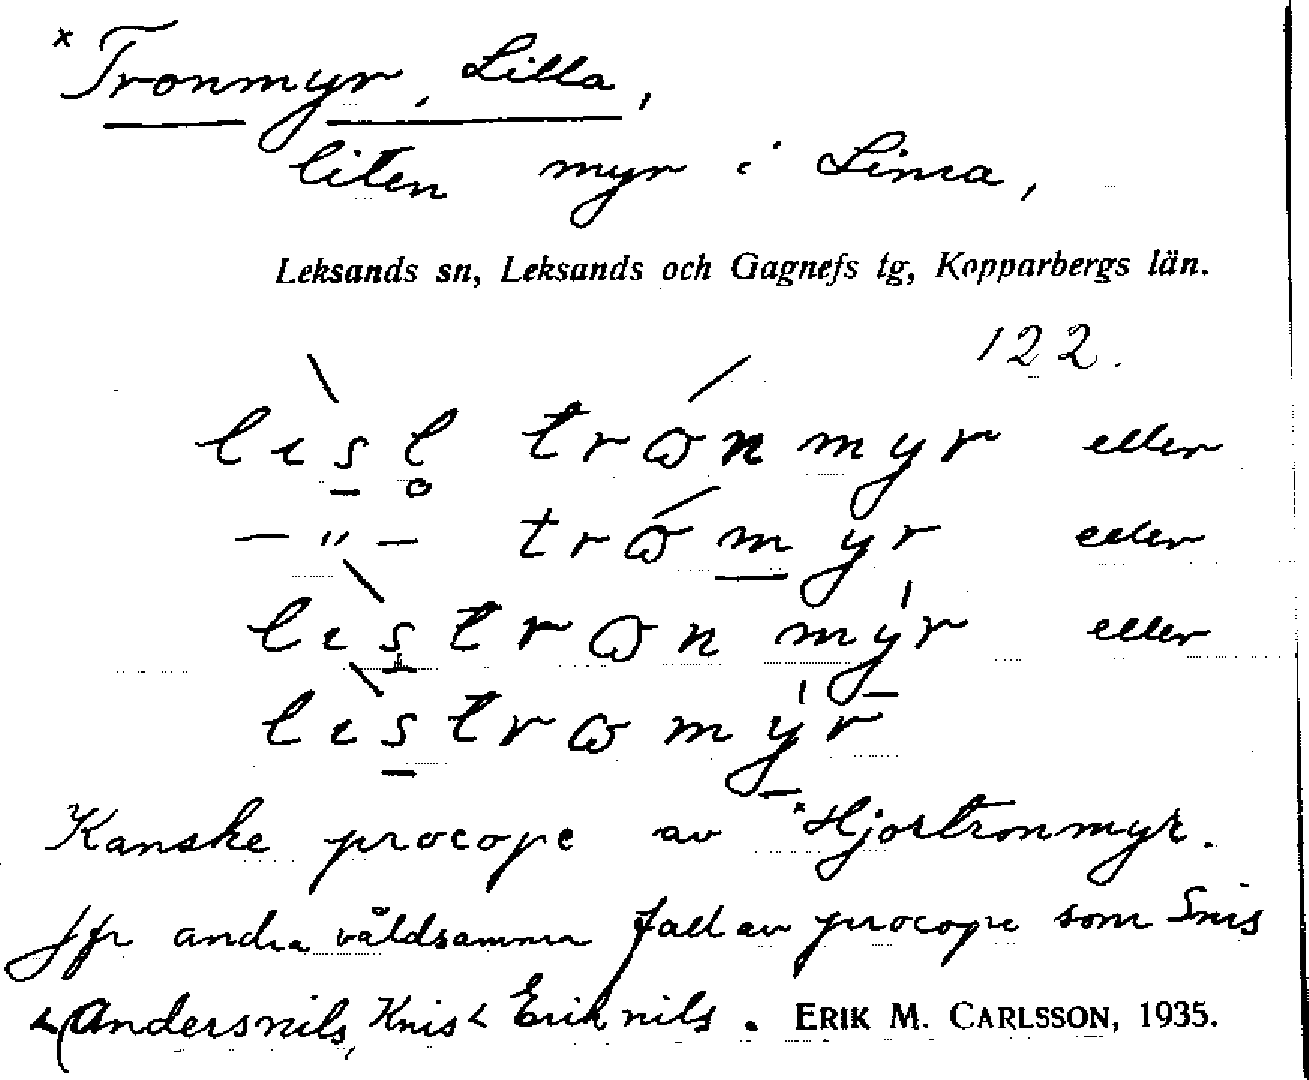 * Tronmyr, Lilla,
liten myr i Lima,
Leksands sn, Leksands och Gagnefs tg, Kopparbergs län.
122.
lɩsl̥ trɷ́nmyr eller
— " — trɷ́myr eller
lɩstrɷnmýr eller
lɩstrɷmýr
Kanske procope av *Hjortronmyr.
Jfr andra våldsamma fall av procope som Snis
< Andersnils, Knis < Eriknils. ERIK M. CARLSSON, 1935.